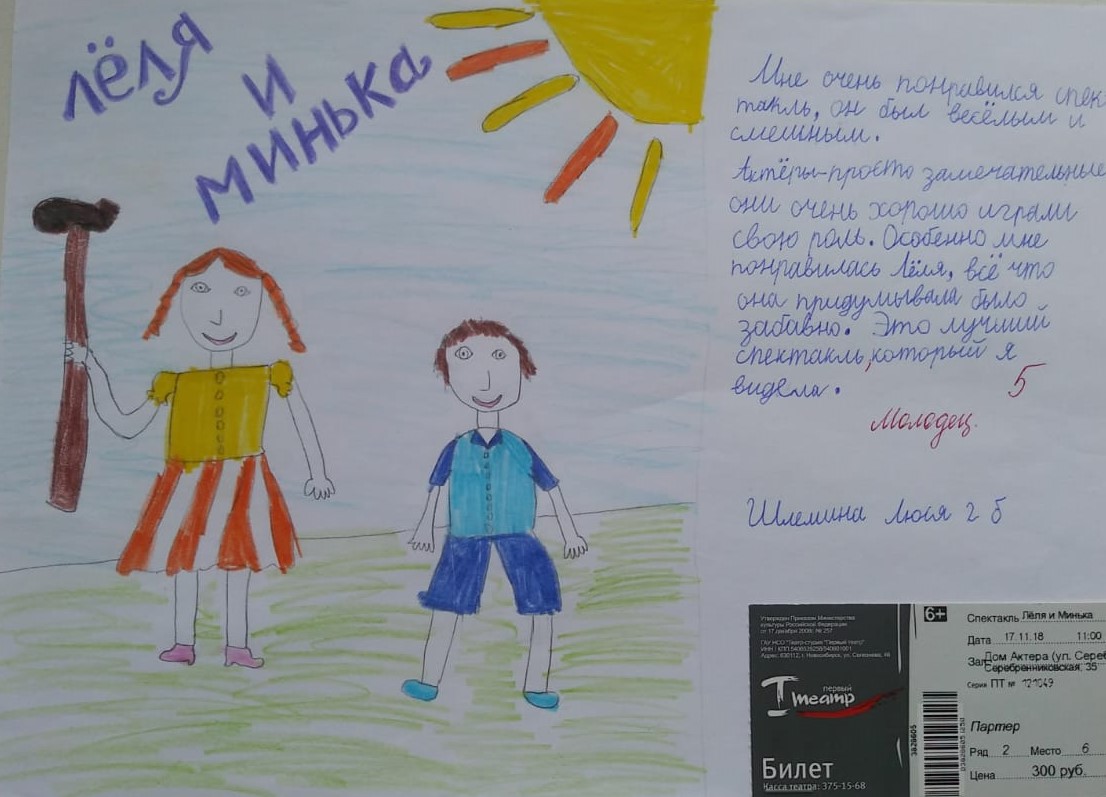 Лёля
и
Минька
Мне очень понравился спек
такль, он был весёлым и
смешным.
Актёры-просто замечательные
они очень хорошо играли
свою роль. Особенно мне
понравилась Лёля, всё что
она придумывала было
забавно. Это лучший
спектакль, который я
видела.
5
Молодец.
Шлемина Люся 2 б
Утвержден Приказом Министерства
культуры Российской Федерации
от 17 декабря 2008г. № 257
ГАУ НСО "Театр-студия "Первый театр"
Адрес: 630112, г. Новосибирск, ул.
первый
театр
Билет
Касса театра: 375-15-68
6+
Спектакль Лёля и Минька
Дата 17.11.18 11:00
Зал Дом Актера (ул. Сереб
Серебренниковская, 35
Серия ПТ № 121049
Партер
Ряд 2 Место 6
Цена 300 руб.